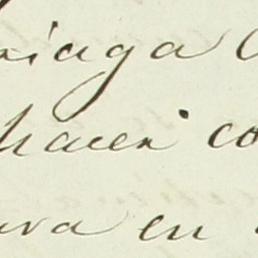 riaga
hacer co
ura en